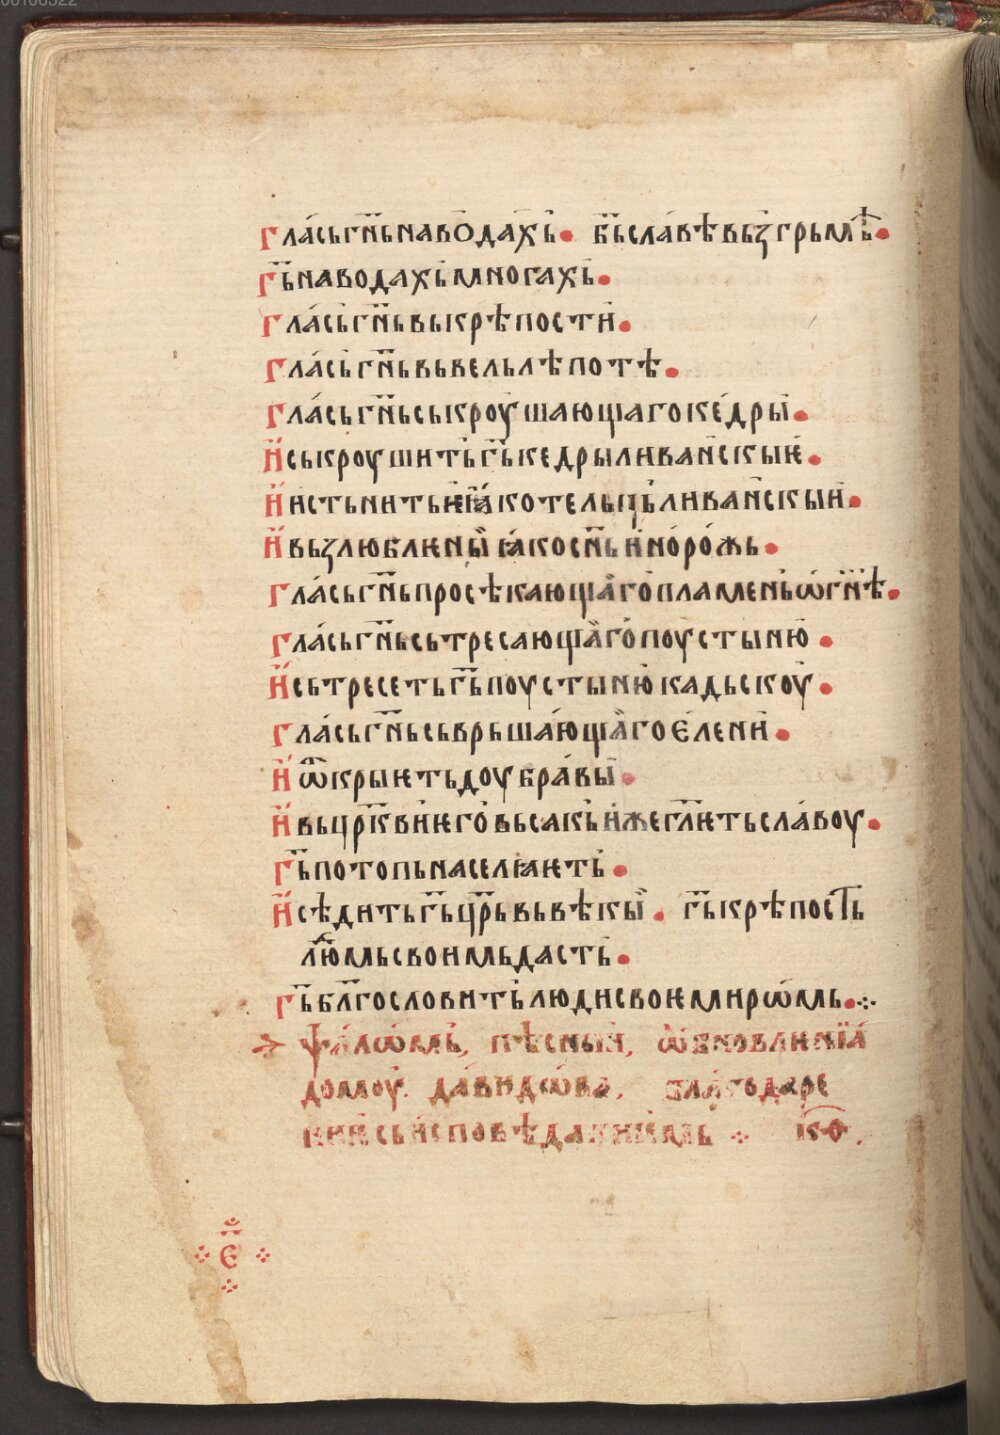 00106322
гла́сьг҃ньнаводахь. б҃ьславѣвьзгрьмѣ.
г҃ьнаводахьмногахь.
гла́сьг҃ньвькрѣпости.
гла́сьг҃ньвьвельлѣпотѣ.
гла́сьг҃ньськроушающагоке́дры.
Иськроушитьг҃ькедрыливаньскыѥ.
И҆истьнитьѥꙗ҆котельцьливаньскыи.
И҆вьзлюблѥныиꙗ҆кос҃ньино́ро́жь.
гла́сьг҃ньпросѣкающагопламеньѡг҃нѣ.
гла́сьг҃ньсьтресающагопоустыню.
И҆сьтресетьг҃ьпоустынюкадьскоу.
гла́сьг҃ньсьврьша́ющагоѥлени.
И҆ѿкрыѥтьдоубра́вы.
И҆вьцр҃квиѥговьсакьи҆жег҃лѥтьсла́воу.
г҃ьпотопьнаселꙗѥть.
И҆сѣдитьг҃ьц҃рьвьвѣкы. г҃ькрѣпость
лю҃мьсвоимьдасть.
г҃ьбл҃гословитьлюдисвоѥмирѡмь.⁘
ѱа́лѡмь, пѣсньи, ѡбновлѥнїа́
домоу. да́видѡва, благодаре
нїѥсьисповѣданиѥмь ⁘ к҃ѳ.
п҃с
⁘ е ⁘